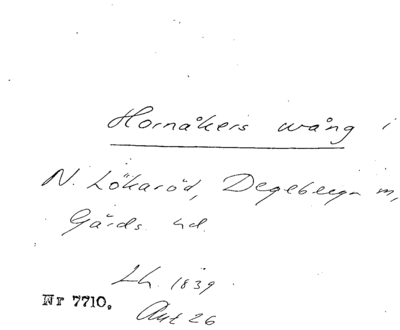 Hornåkers wång i
N. Lökaröd, Degeberga m,
Gärds hd.
Lh. 1839
Nr 7710.
Akt 26